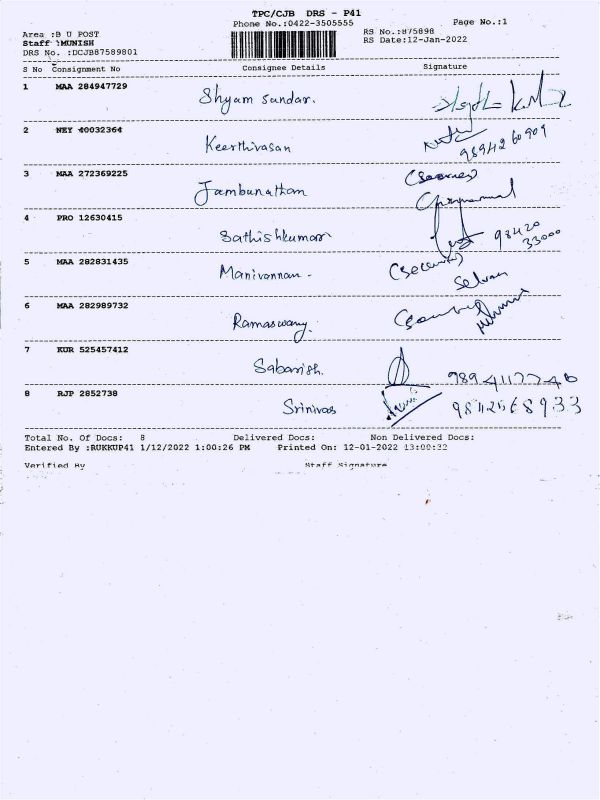 TPC/CJB DRS - P41
Phone No.:0422-3505555 Page No.:1
Area :B U POST RS No.:875898
Staff :MUNISH RS Date:12-Jan-2022
DRS No. :DCJB87589801
S No Consignment No Consignee Details Signature
1 MAA 284947729 Shyam Sundar.
2 NEY 40032364 Keerthivasan
98942 60909
3 MAA 272369225 Jambunathan
4 PRO 12630415 Sathishkumar 98420
33000
5 MAA 282831435 Manivannan - (Security)
Selvan
6 MAA 282989732 Ramaswamy.
7 KUR 525457412 Sabarish. 9894117740
8 RJP 2852738 Srinivas
Total No. Of Docs: 8 Delivered Docs: Non Delivered Docs:
Entered By :RUKKUP41 1/12/2022 1:00:26 PM Printed On: 12-01-2022 13:00:32
Verified By Staff Signature